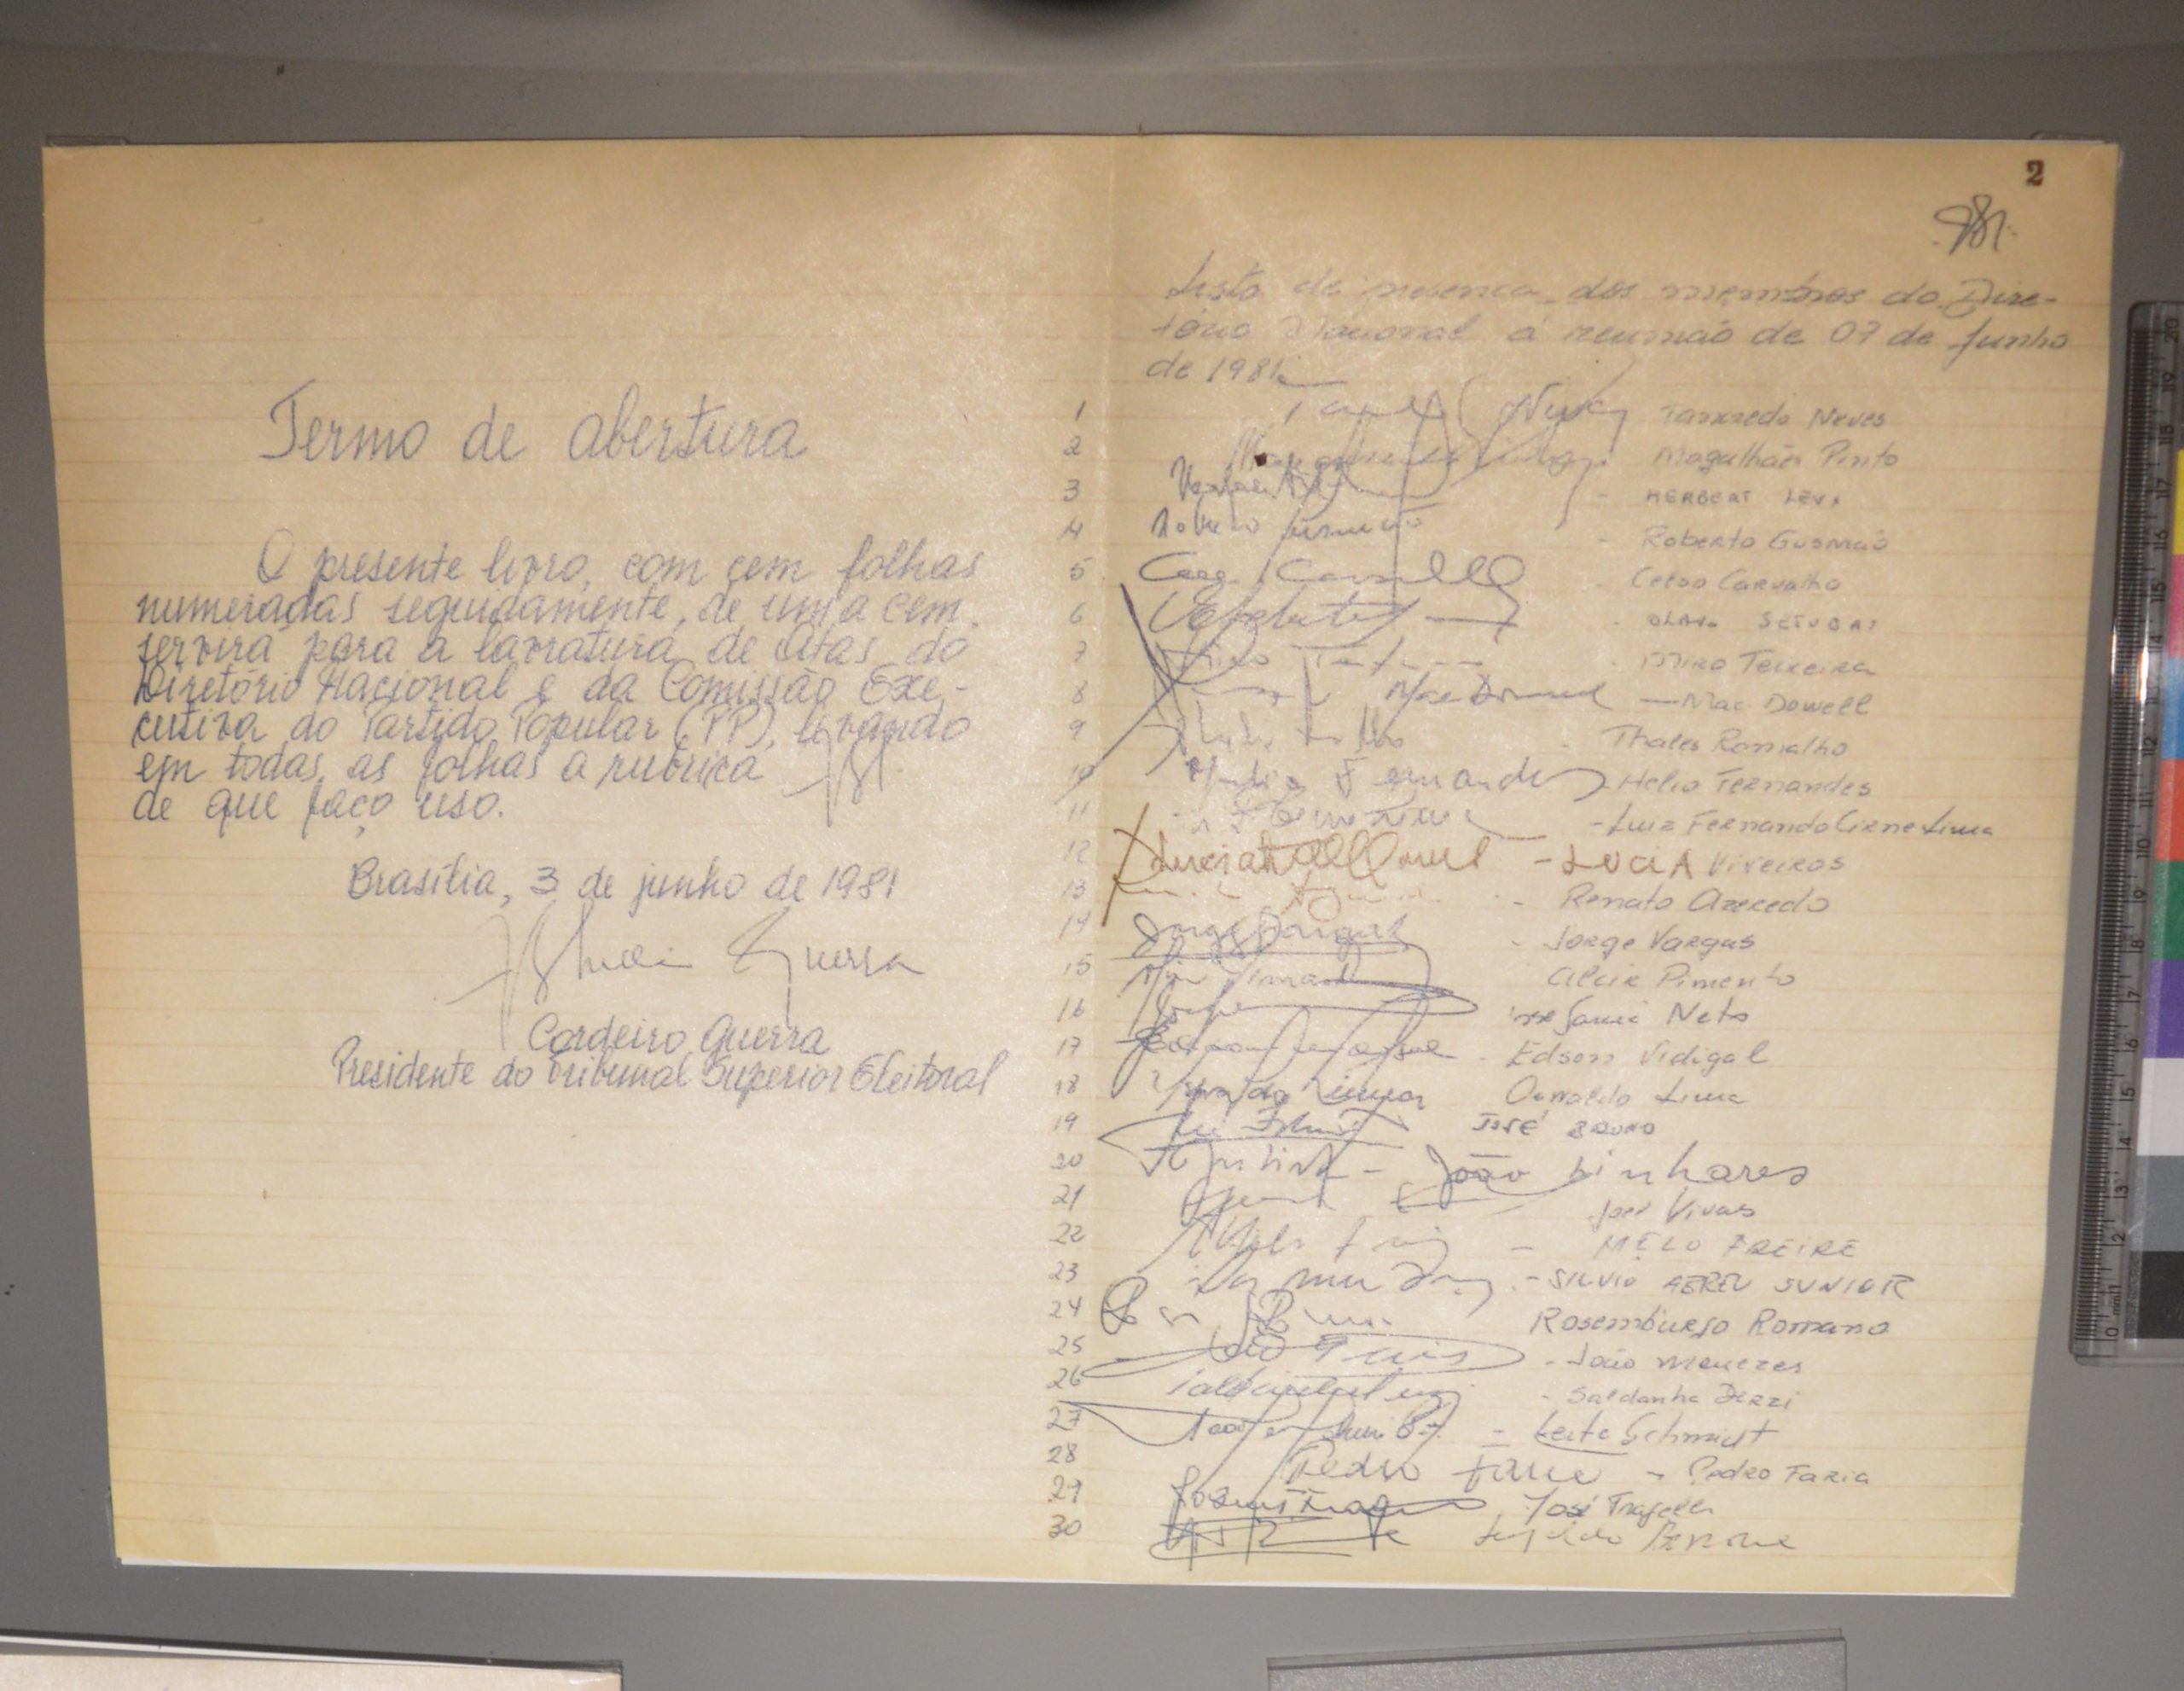 Termo de abertura
O presente livro, com cem folhas
numeradas seguidamente, de um a cem,
servirá para a lavratura de atas do
Diretório Nacional e da Comissão Exe-
cutiva do Partido Popular (PP), levando
em todas as folhas a rubrica
de que faço uso.
Brasília, 3 de junho de 1981
Guerra
Cordeiro Guerra
Presidente do Tribunal Superior Eleitoral
2
Lista de presença dos membros do Dire-
tório Nacional à reunião de 07 de Junho
de 1981
1 Tancredo Neves
2 Magalhães Pinto
3 - HERBERT LEVY
4 - Roberto Gusmão
5 - Celso Carvalho
6 - OLAVO SETUBAL
7 - Miro Teixeira
8 Mac Dowell — Mac Dowell
9 - Thales Ramalho
10 Helio Fernandes - Helio Fernandes
11 - Luiz Fernando Cirne Lima
12 - LUCIA Viveiros
13 - Renato Azeredo
14 Jorge Vargas - Jorge Vargas
15 Alcir Pimenta
16 Neto
17 - Edson Vidigal
18 Osvaldo Lima
19 JOSÉ BRUNO
20 - João Linhares
21 Joel Vivas
22 - MELO FREIRE
23 - SILVIO ABREU JUNIOR
24 Rosemburgo Romano
25 - João Menezes
26 - Saldanha Derzi
27 - Leite Schmidt
28 Pedro Faria - Pedro Faria
29 José Fragelli
30